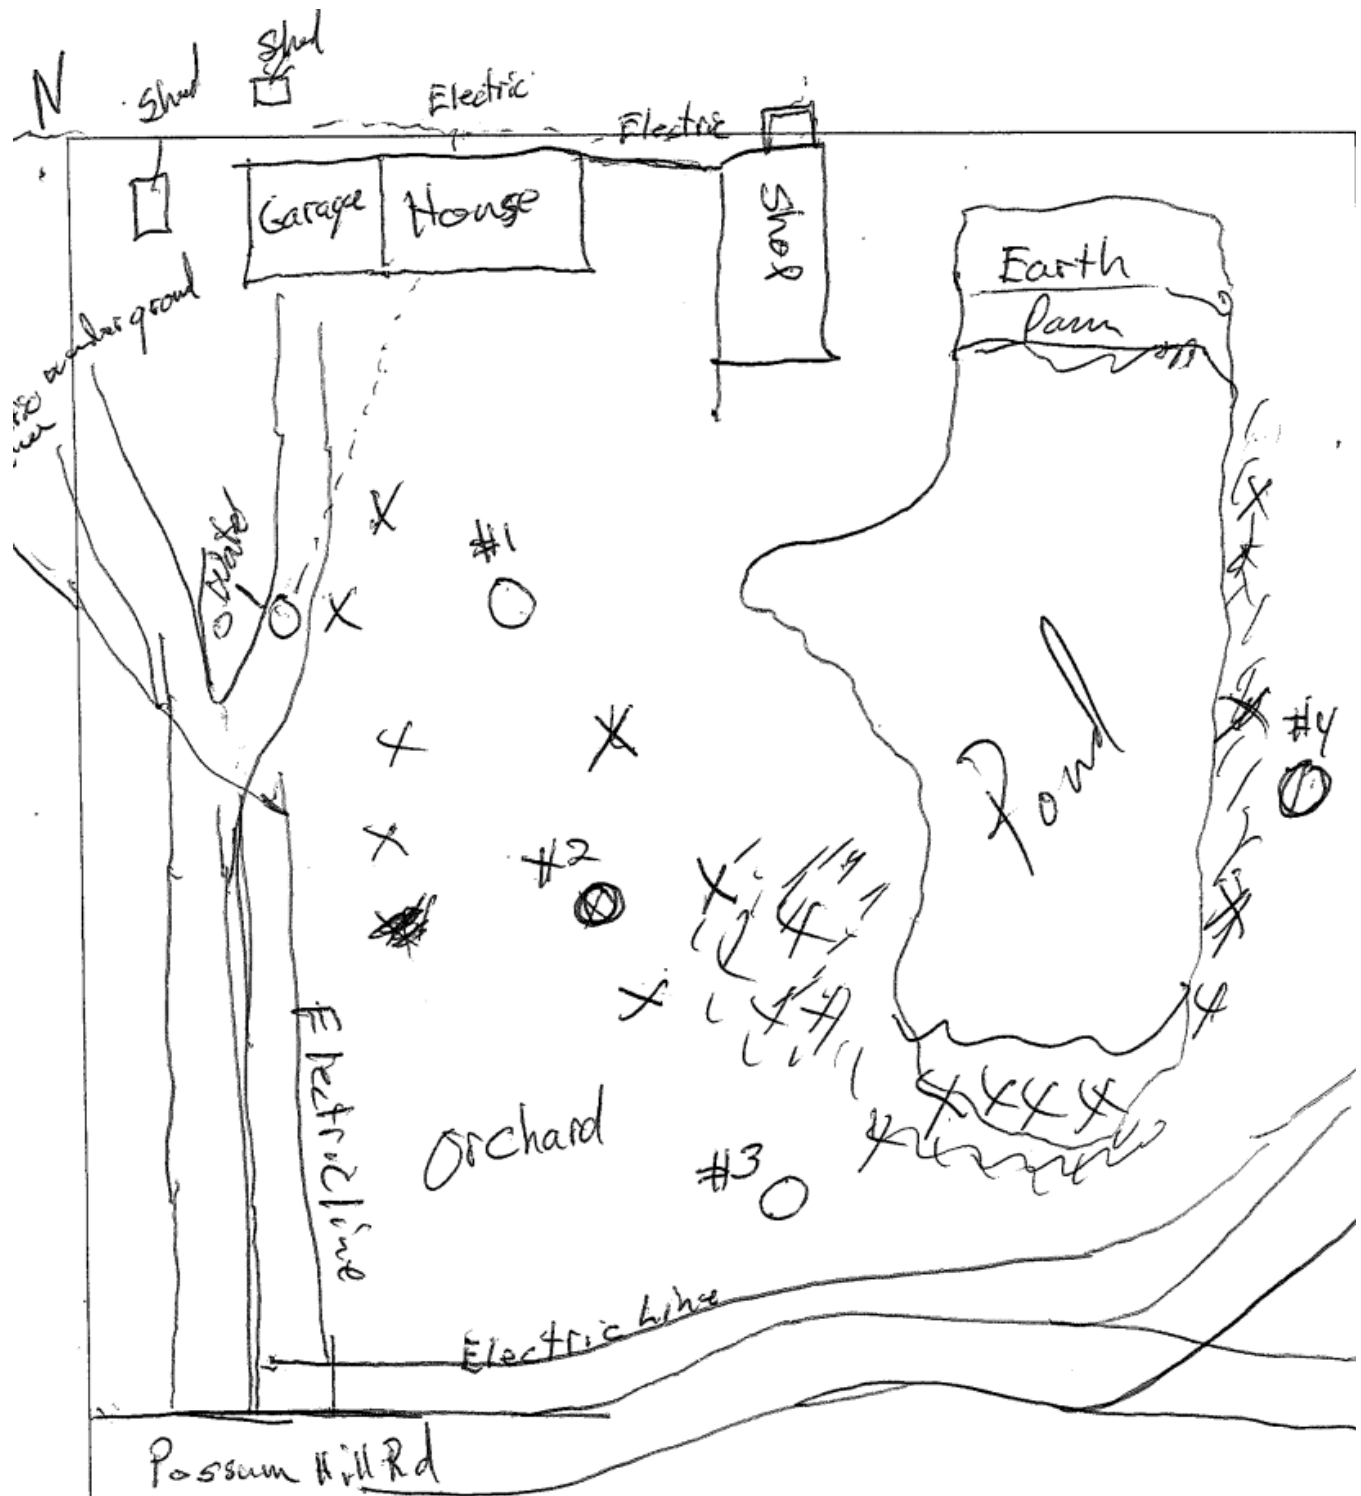 N
Shed
Shed
Electric
Electric
Garage
House
Shop
Earth
Dam
underground
Water
#1
#2
#3
#4
Pond
Orchard
Electric line
Electric Line
Possum Hill Rd